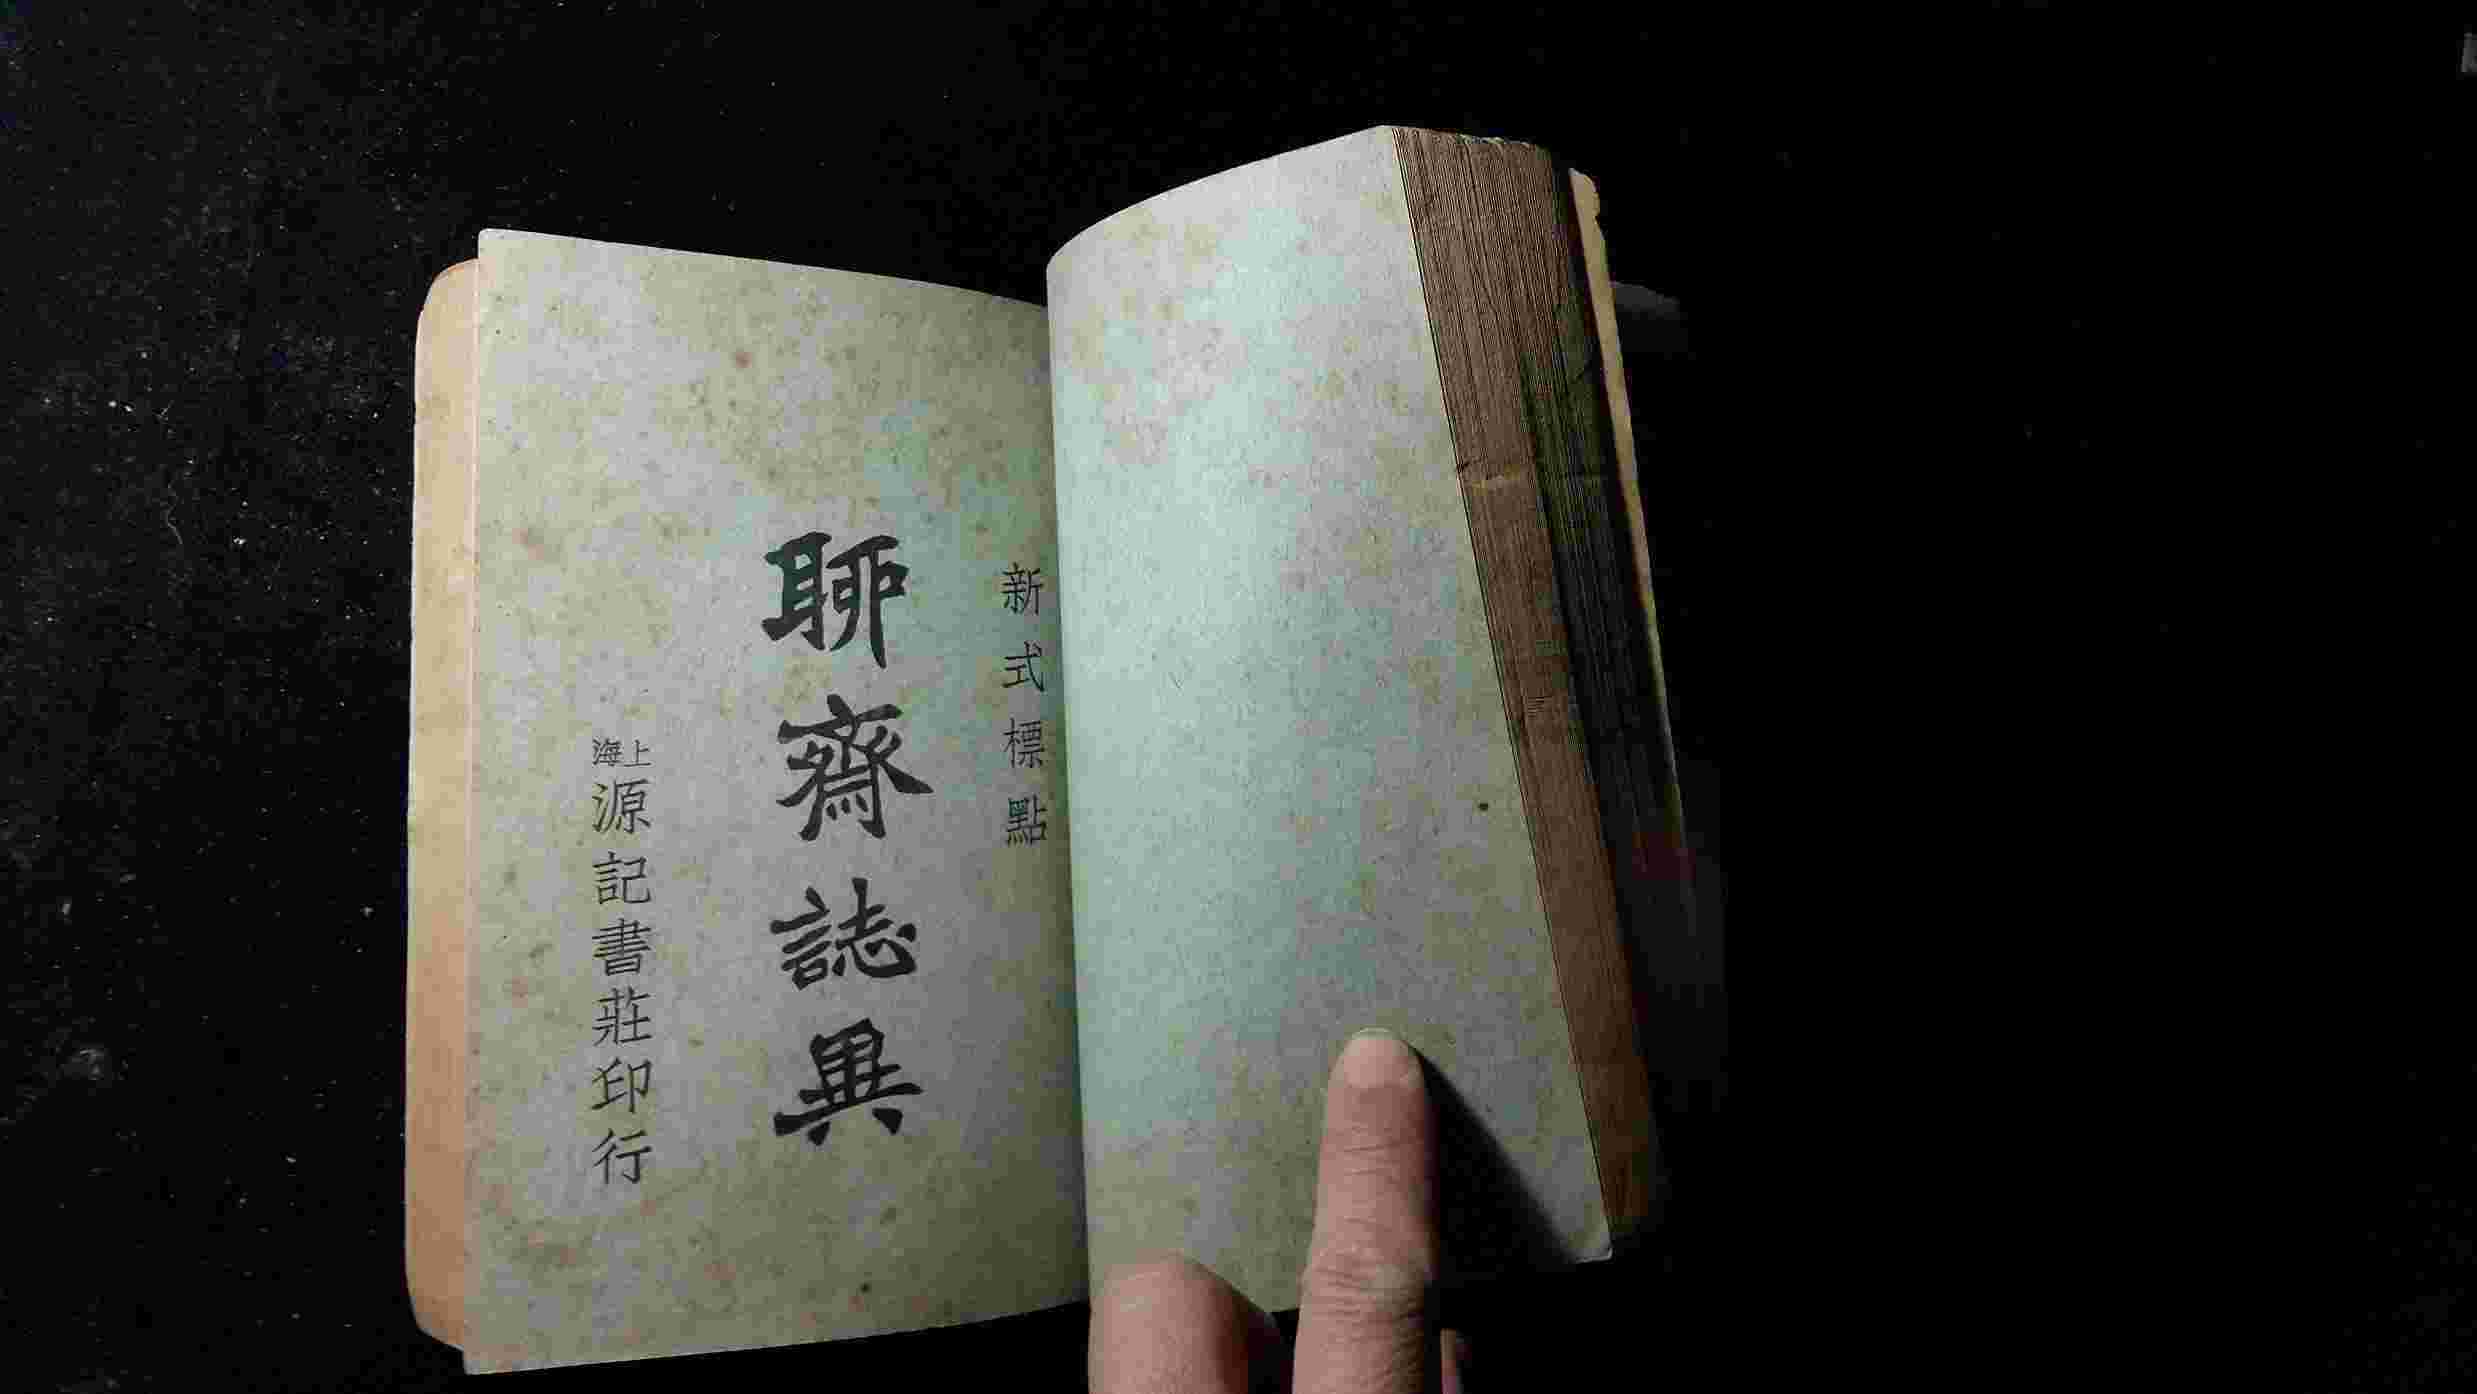 新式標點
聊齋誌異
上海源記書莊印行